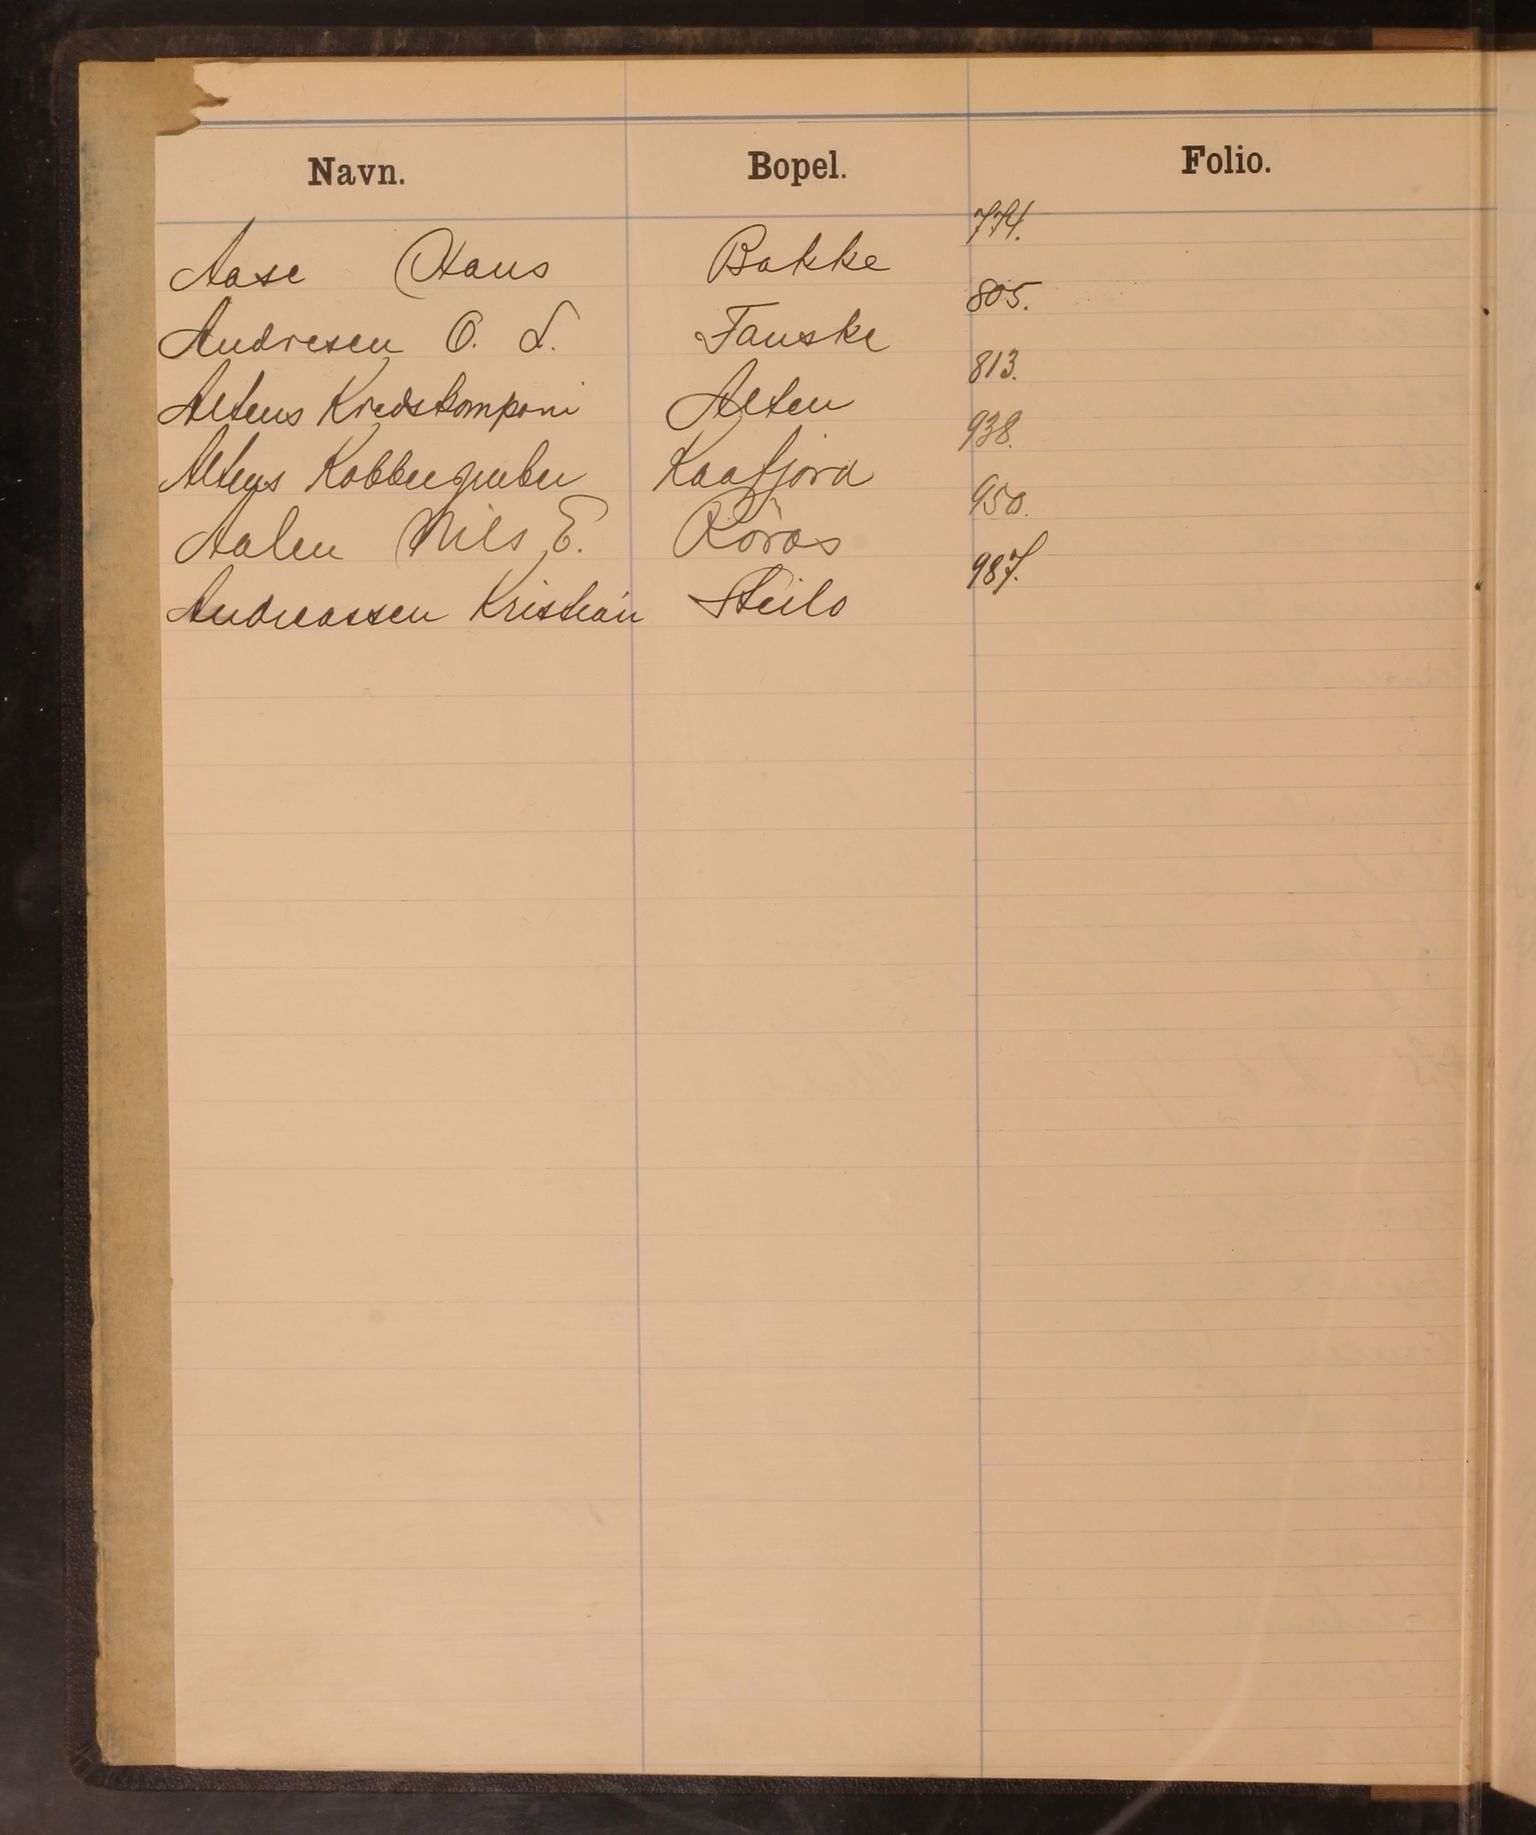 Navn. Bopel. Folio.
Aase Hans Bakke 774.
Andresen O. L. Fauske 805.
Altens Kredskomponi Alten 813.
Altens Kobbergruber Kaafjord 938.
Aalen Nils E. Röros 950.
Andreassen Kristian 987.